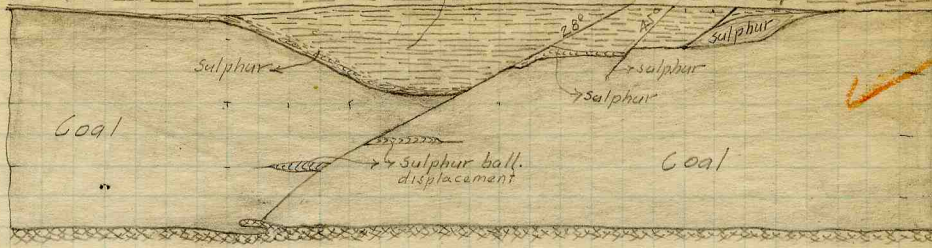 28°
45°
Sulphur
Sulphur
Sulphur
Sulphur
Coal
Sulphur ball.
displacement
Coal